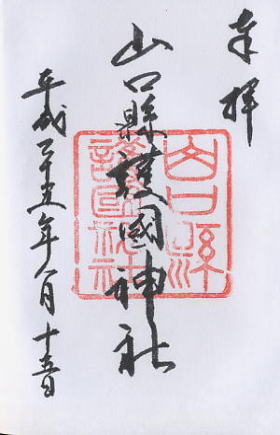 奉拝
山口縣護國神社
平成二十五年八月十五日
山口縣
護國神社